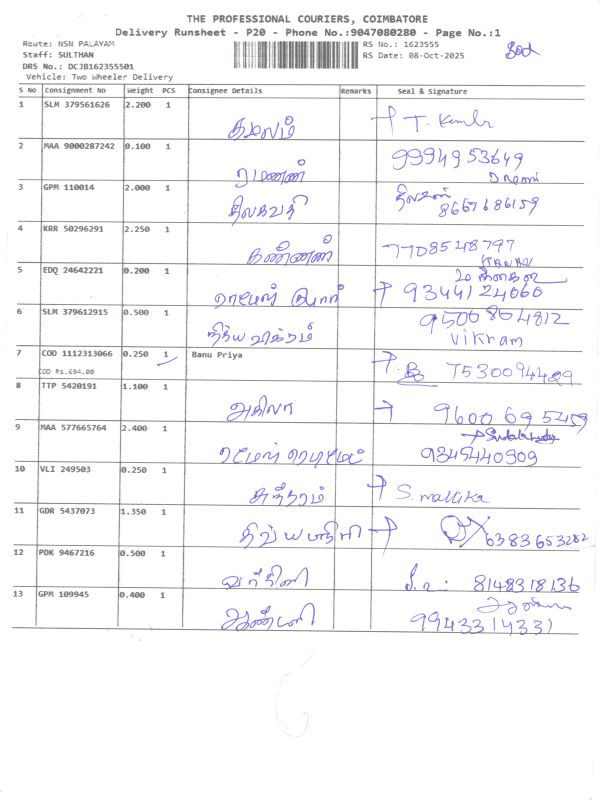 THE PROFESSIONAL COURIERS, COIMBATORE
Delivery Runsheet - P20 - Phone No.:9047080280 - Page No.:1
Route: NSN PALAYAM RS No.: 1623555
Staff: SULTHAN RS Date: 08-Oct-2025
DRS No.: DCJB162355501
Vehicle: Two Wheeler Delivery
S No Consignment No Weight PCS Consignee Details Remarks Seal & Signature
1 SLM 379561626 2.200 1
கமலம் T. Kamla
2 MAA 9000287242 0.100 1
ரமணன் 9994953649
3 GPM 110014 2.000 1
திலகவதி 8667686159
4 KRR 50296291 2.250 1
கண்ணன் 7708548797
5 EDQ 24642221 0.200 1
9344124060
6 SLM 379612915 0.500 1 9506864812
நித்ய விக்ரம் Vikram
7 COD 1112313066 0.250 1 Banu Priya
COD Rs.694.00 7530094429
8 TTP 5420191 1.100 1
அகிலா 9600695459
9 MAA 577665764 2.400 1
9345440909
10 VLI 249503 0.250 1
S. mallika
11 GDR 5437073 1.350 1
திவ்ய பாரதி 6383653282
12 PDK 9467216 0.500 1
வர்தினி 8148318136
13 GPM 109945 0.400 1
9943314331